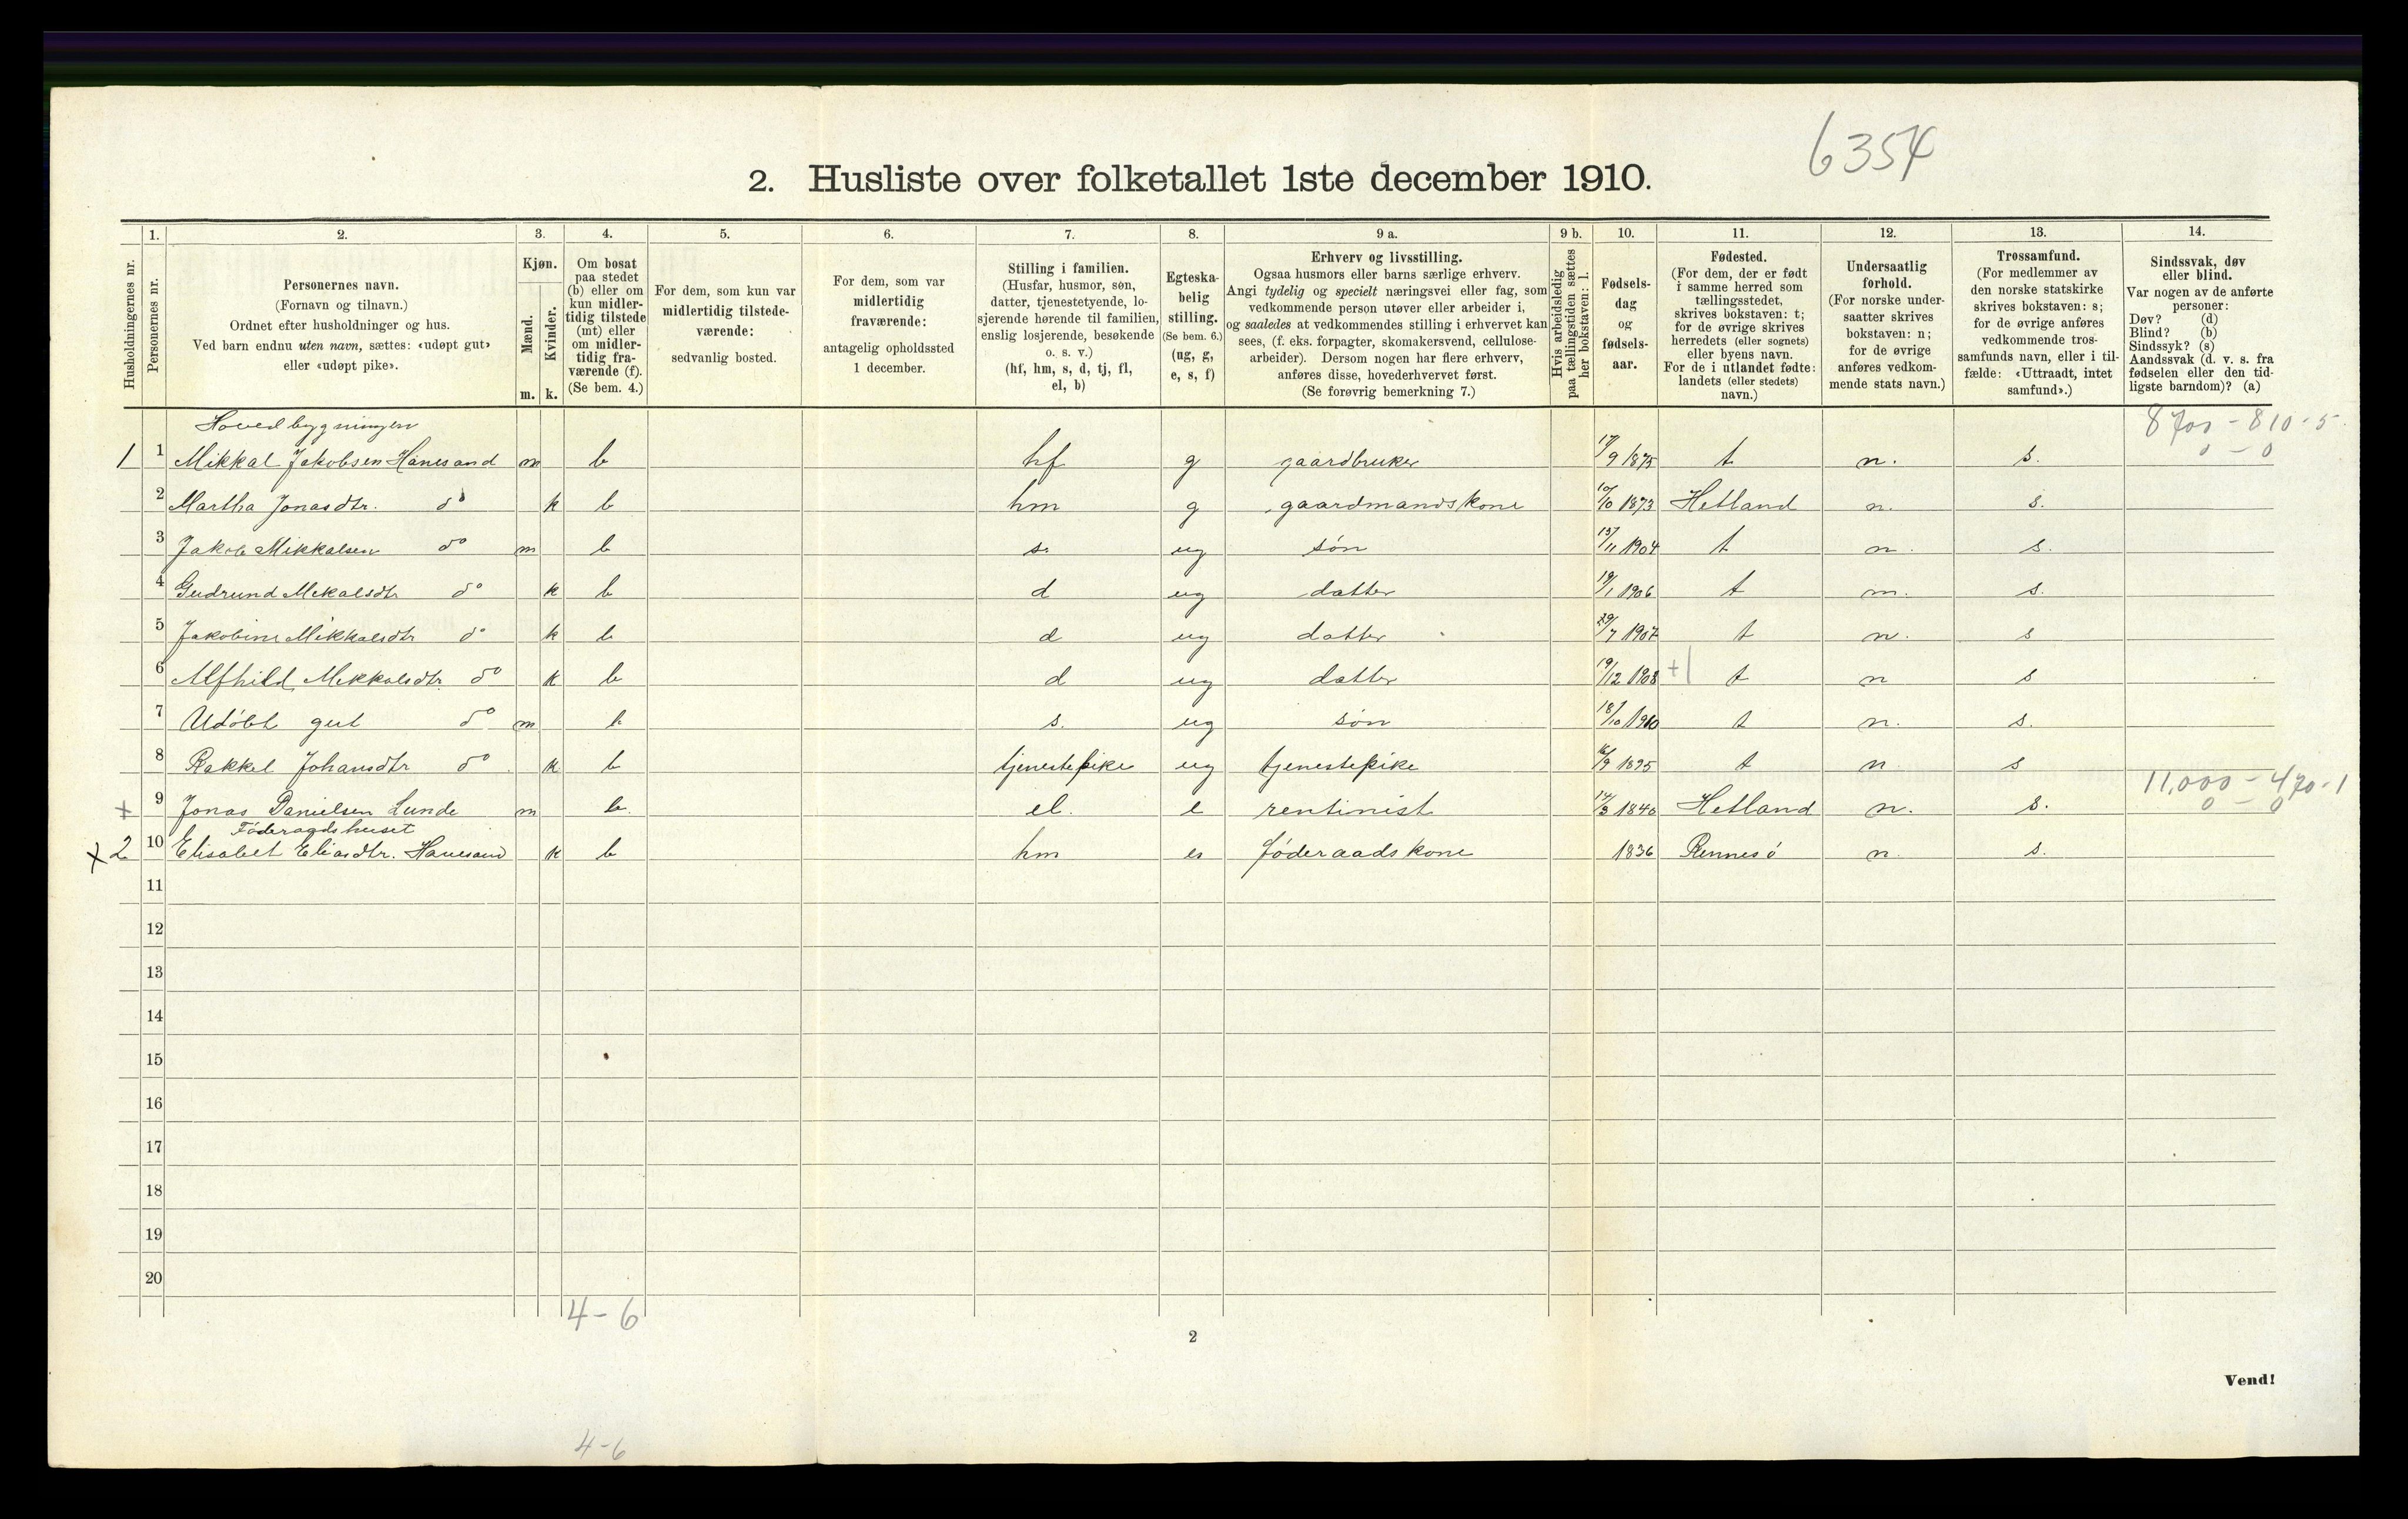 6354
2. Husliste over folketallet 1ste december 1910.
Husholdningernes nr.
1.
Personernes nr.
2.
Personernes navn.
(Fornavn og tilnavn.)
Ordnet efter husholdninger og hus.
Ved barn endnu uten navn, sættes: «udøpt gut»
eller «udøpt pike».
3.
Kjøn.
Mænd.
Kvinder.
m.
k.
4.
Om bosat
paa stedet
(b) eller om
kun midler-
tidig tilstede
(mt) eller
om midler-
tidig fra-
værende (f).
(Se bem. 4.)
5.
For dem, som kun var
midlertidig tilstede-
værende:
sedvanlig bosted.
6.
For dem, som var
midlertidig
fraværende:
antagelig opholdssted
1 december.
7.
Stilling i familien.
(Husfar, husmor, søn,
datter, tjenestetyende, lo-
sjerende hørende til familien,
enslig losjerende, besøkende
o. s. v.)
(hf, hm, s, d, tj, fl,
el, b)
8.
Egteska-
belig
stilling.
(Se bem. 6.)
(ug, g,
e, s, f)
9 a.
Erhverv og livsstilling.
Ogsaa husmors eller barns særlige erhverv.
Angi tydelig og specielt næringsvei eller fag, som
vedkommende person utøver eller arbeider i,
og saaledes at vedkommendes stilling i erhvervet kan
sees, (f. eks. forpagter, skomakersvend, cellulose-
arbeider). Dersom nogen har flere erhverv,
anføres disse, hovederhvervet først.
(Se forøvrig bemerkning 7.)
9 b.
Hvis arbeidsledig
paa tællingstiden sættes
her bokstaven: l.
10.
Fødsels-
dag
og
fødsels-
aar.
11.
Fødested.
(For dem, der er født
i samme herred som
tællingsstedet,
skrives bokstaven: t;
for de øvrige skrives
herredets (eller sognets)
eller byens navn.
For de i utlandet fødte:
landets (eller stedets)
navn.)
12.
Undersaatlig
forhold.
(For norske under-
saatter skrives
bokstaven: n;
for de øvrige
anføres vedkom-
mende stats navn.)
13.
Trossamfund.
(For medlemmer av
den norske statskirke
skrives bokstaven: s;
for de øvrige anføres
vedkommende tros-
samfunds navn, eller i til-
fælde: «Uttraadt, intet
samfund».)
14.
Sindssvak, døv
eller blind.
Var nogen av de anførte
personer:
Døv? (d)
Blind? (b)
Sindssyk? (s)
Aandssvak (d. v. s. fra
fødselen eller den tid-
ligste barndom)? (a)
Hovedbygningen 8700 - 810 - 5
0 - 0
1 1 Mikkal Jakobsen Hanesand m b hf g gaardbruker 17/9 1875 t n. s.
2 Martha Jonasdtr. do k b hm g gaardmandskone 10/10 1873 Hetland n. s.
3 Jakob Mikkalsen do m b s. ug søn 13/11 1904 t n. s.
4 Gudrund Mekalsdtr do k b d ug datter 19/1 1906 t n. s.
5 Jakobine Mikkalsdtr do k b d ug datter 29/7 1907 t n. s
6 Alfhild Mekkalsdtr do k b d ug datter 19/12 1908 +1 t n s
7 Udøbt gut do m b s. ug søn 18/10 1910 t n. s.
8 Rakkel Johansdtr do k b tjenestepike ug tjenestepike 16/9 1895 t n s
11,000 - 470 - 1
0 - 0
+ 9 Jonas Danielsen Lunde m b. el. e rentinist 14/3 1840 Hetland n. s.
Føderaadshuset
x 2 10 Elisabet Eliasdtr. Hanesand k b hm es føderaadskone 1836 Rennesø n. s.
11
12
13
14
15
16
17
18
19
20
4 - 6
2
Vend!
4 - 6